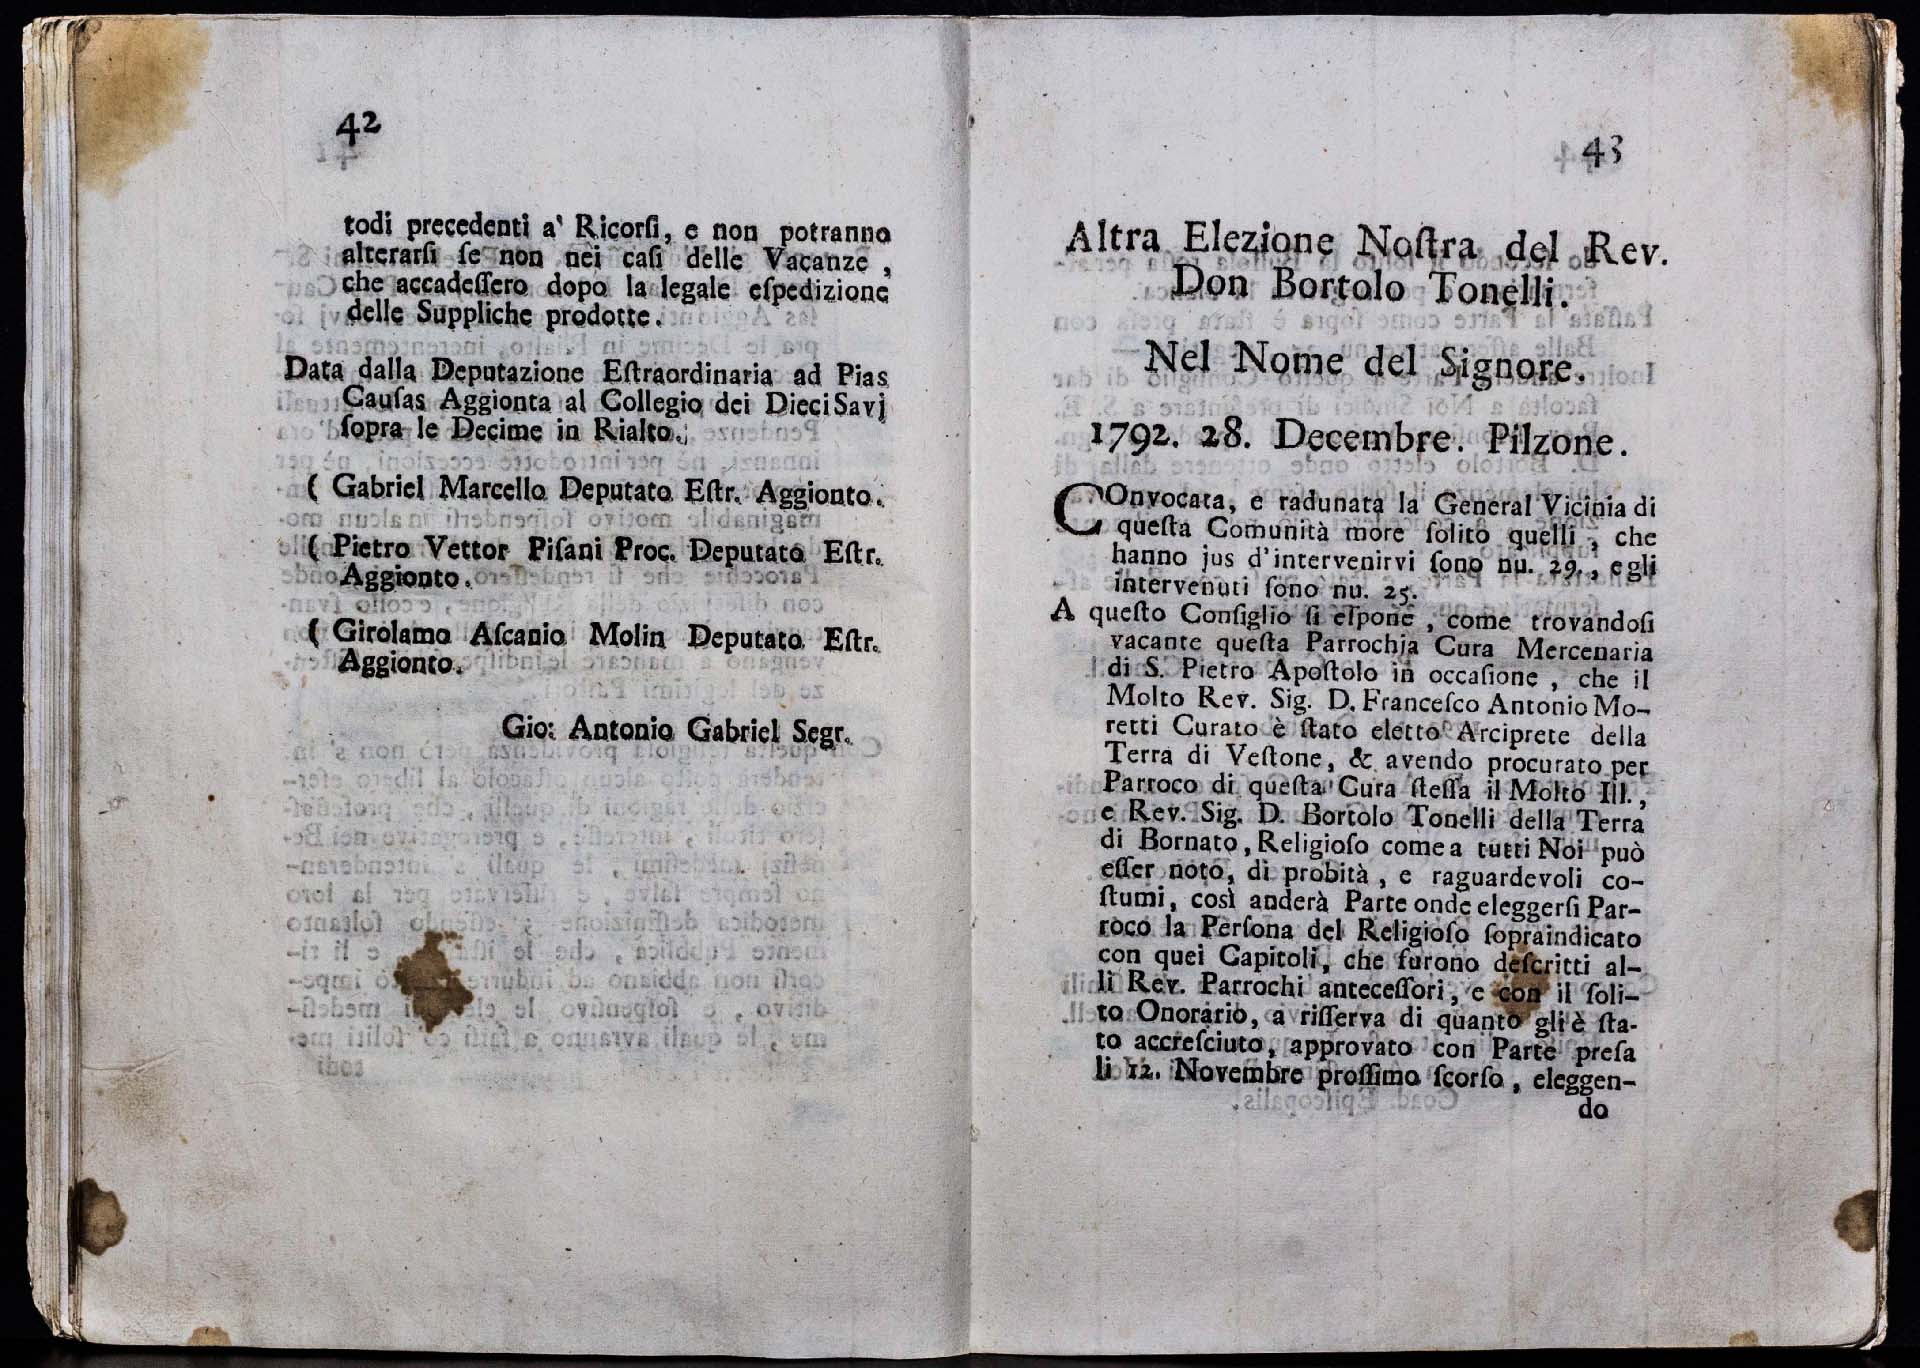 42
todi precedenti a' Ricorſi, e non potranno
alterarſi ſe non nei caſi delle Vacanze,
che accadeſſero dopo la legale eſpedizione
delle Suppliche prodotte.
Data dalla Deputazione Eſtraordinaria ad Pias
Cauſas Aggionta al Collegio dei Dieci Savj
ſopra le Decime in Rialto.
( Gabriel Marcello Deputato Eſtr. Aggionto.
( Pietro Vettor Piſani Proc. Deputato Eſtr.
Aggionto.
( Girolamo Aſcanio Molin Deputato Eſtr.
Aggionto.
Gio: Antonio Gabriel Segr.
43
Altra Elezione Noſtra del Rev.
Don Bortolo Tonelli.
Nel Nome del Signore.
1792. 28. Decembre. Pilzone.
COnvocata, e radunata la General Vicinia di
queſta Comunità more ſolito quelli, che
hanno jus d'intervenirvi ſono nu. 29., e gli
intervenuti ſono nu. 25.
A queſto Conſiglio ſi eſpone, come trovandoſi
vacante queſta Parrochia Cura Mercenaria
di S. Pietro Apoſtolo in occaſione, che il
Molto Rev. Sig. D. Franceſco Antonio Mo-
retti Curato è ſtato eletto Arciprete della
Terra di Veſtone, & avendo procurato per
Parroco di queſta Cura ſteſſa il Molto Ill.,
e Rev. Sig. D. Bortolo Tonelli della Terra
di Bornato, Religioſo come a tutti Noi può
eſſer noto, di probità, e raguardevoli co-
ſtumi, così anderà Parte onde eleggerſi Par-
roco la Perſona del Religioſo ſopraindicato
con quei Capitoli, che furono deſcritti al-
li Rev. Parrochi anteceſſori, e con il ſoli-
to Onorario, a riſſerva di quanto gli è ſta-
to accreſciuto, approvato con Parte preſa
li 12. Novembre proſſimo ſcorſo, eleggen-
do